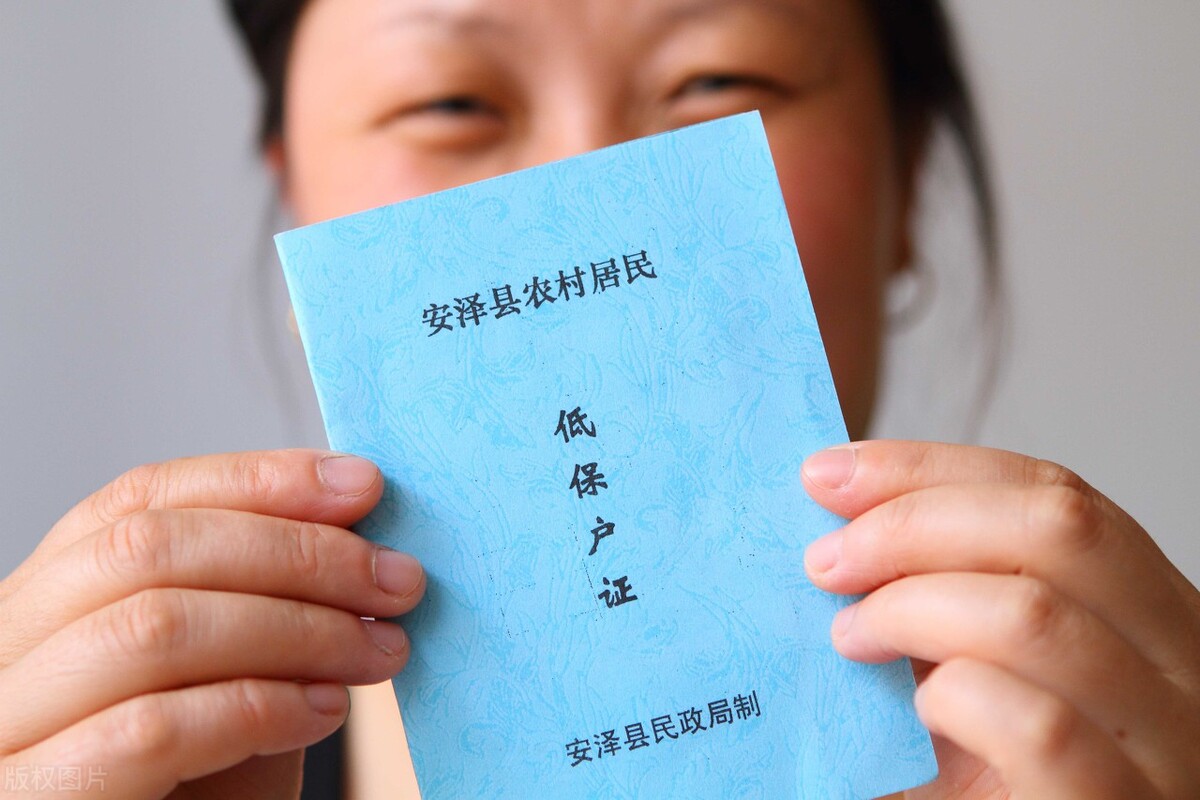 安泽县农村居民
低保户证
安泽县民政局制
版权图片